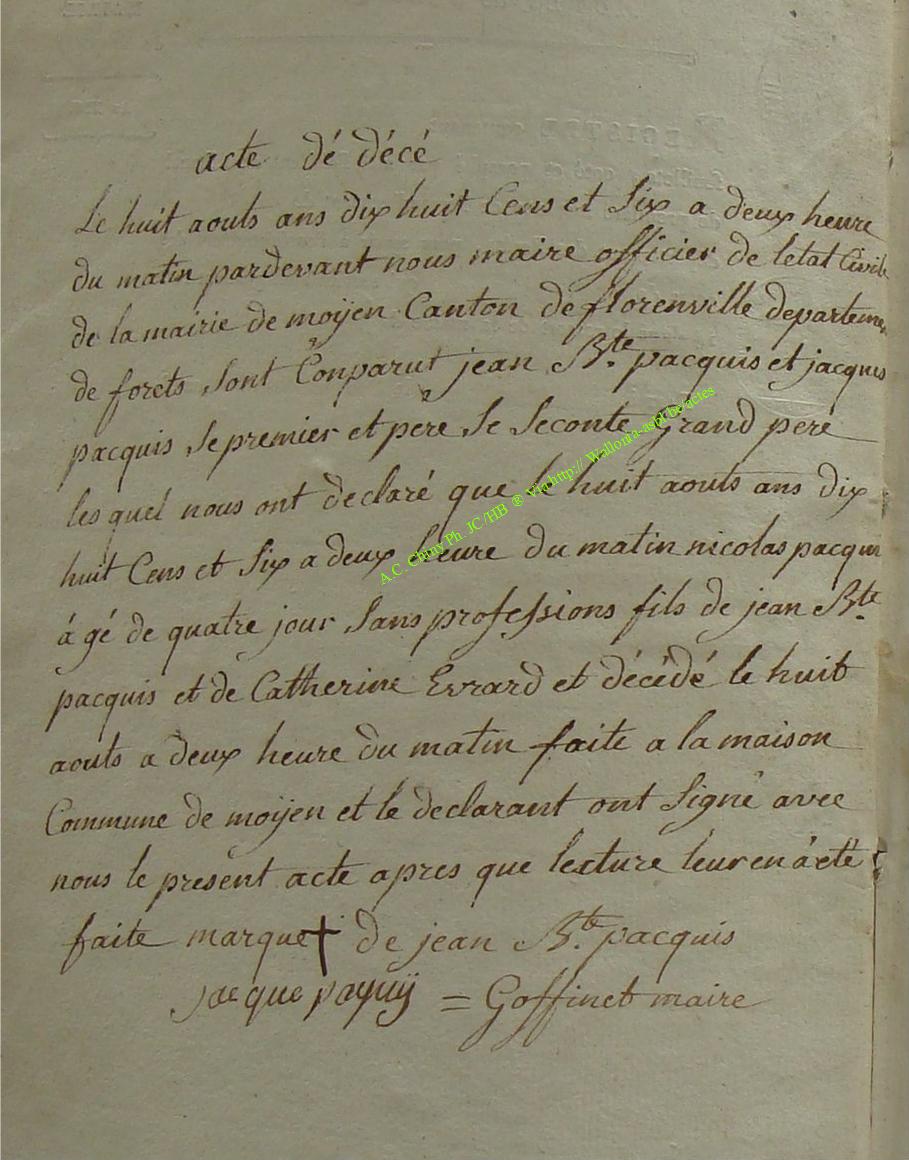 acte dé décé
Le huit aouts ans dix huit Cens et Six a deux heure
du matin pardevant nous maire officier de letat Civile
de la mairie de moÿen Canton de florenville departemen
de forets sont Conparut jean B.te pacquis et jacques
pacquis le premier et pere le Seconte Grand pere
les quel nous ont declaré que le huit aouts ans dix
huit Cens et Six a deux heure du matin nicolas pacqui
á gé de quatre jour Sans professions fils de jean B.te
pacquis et de Catherine Evrard et décédé le huit
aouts a deux heure du matin faite a la maison
Commune de moÿen et le declarant ont Signé avec
nous le present acte apres que lecture leur en à eté
faite marque + de jean B.te pacquis
Jacque paquij = Goffinet maire
A.C. Chiny Ph. JC/HB ® Via http:// Wallonia-asbl.be/actes